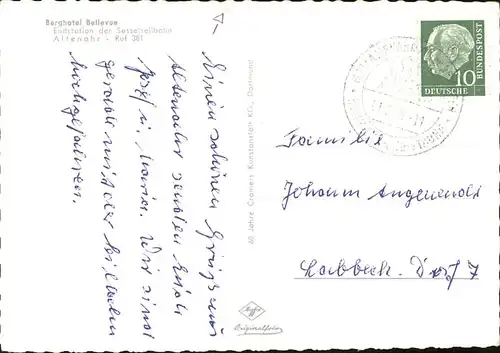 Berghotel Bellevue
Endstation der Sesselseilbahn
Altenahr - Ruf 381
Einen schönen Gruß aus
Altenahr senden Euch
Josef u. Maria. Wir sind
gerade mit der Seilbahn
hochgefahren.
60 Jahre Cramers Kunstanstalt KG., Dortmund
Agfa
Originalfoto
DEUTSCHE
BUNDESPOST
10
Familie
Johann
Labbeck. Dorf 7